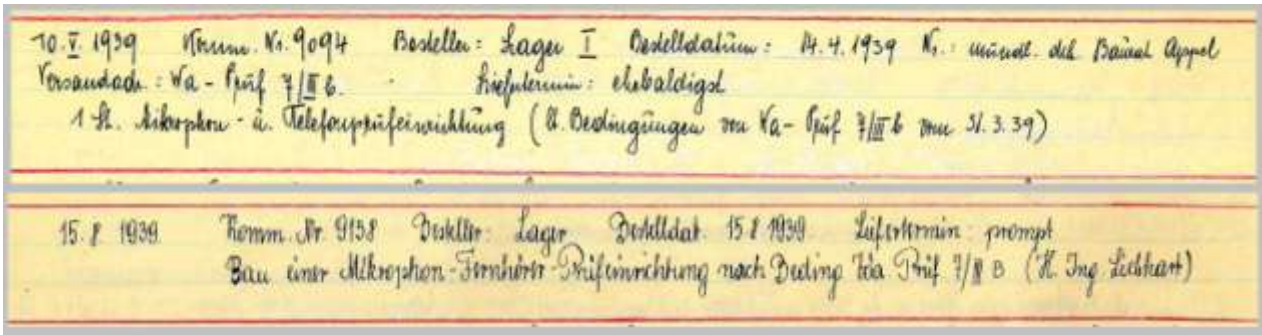 10. V. 1939 Komm. Nr. 9094 Besteller: Lager I Bestelldatum: 14.4.1939 Nr.: mündl. dch. Baurat Appel
Versandadr.: Wa-Prüf 7/III b. Liefertermin: ehebaldigst
1 St. Mikrophon- u. Telefonprüfeinrichtung (lt. Bedingungen von Wa-Prüf 7/III b vom 31.3.39)
15. 8 1939 Komm. Nr. 9138 Besteller: Lager Bestelldat. 15 8 1939 Liefertermin: prompt
Bau einer Mikrophon-Fernhörer-Prüfeinrichtung nach Beding Wa Prüf 7/III B (H. Ing.